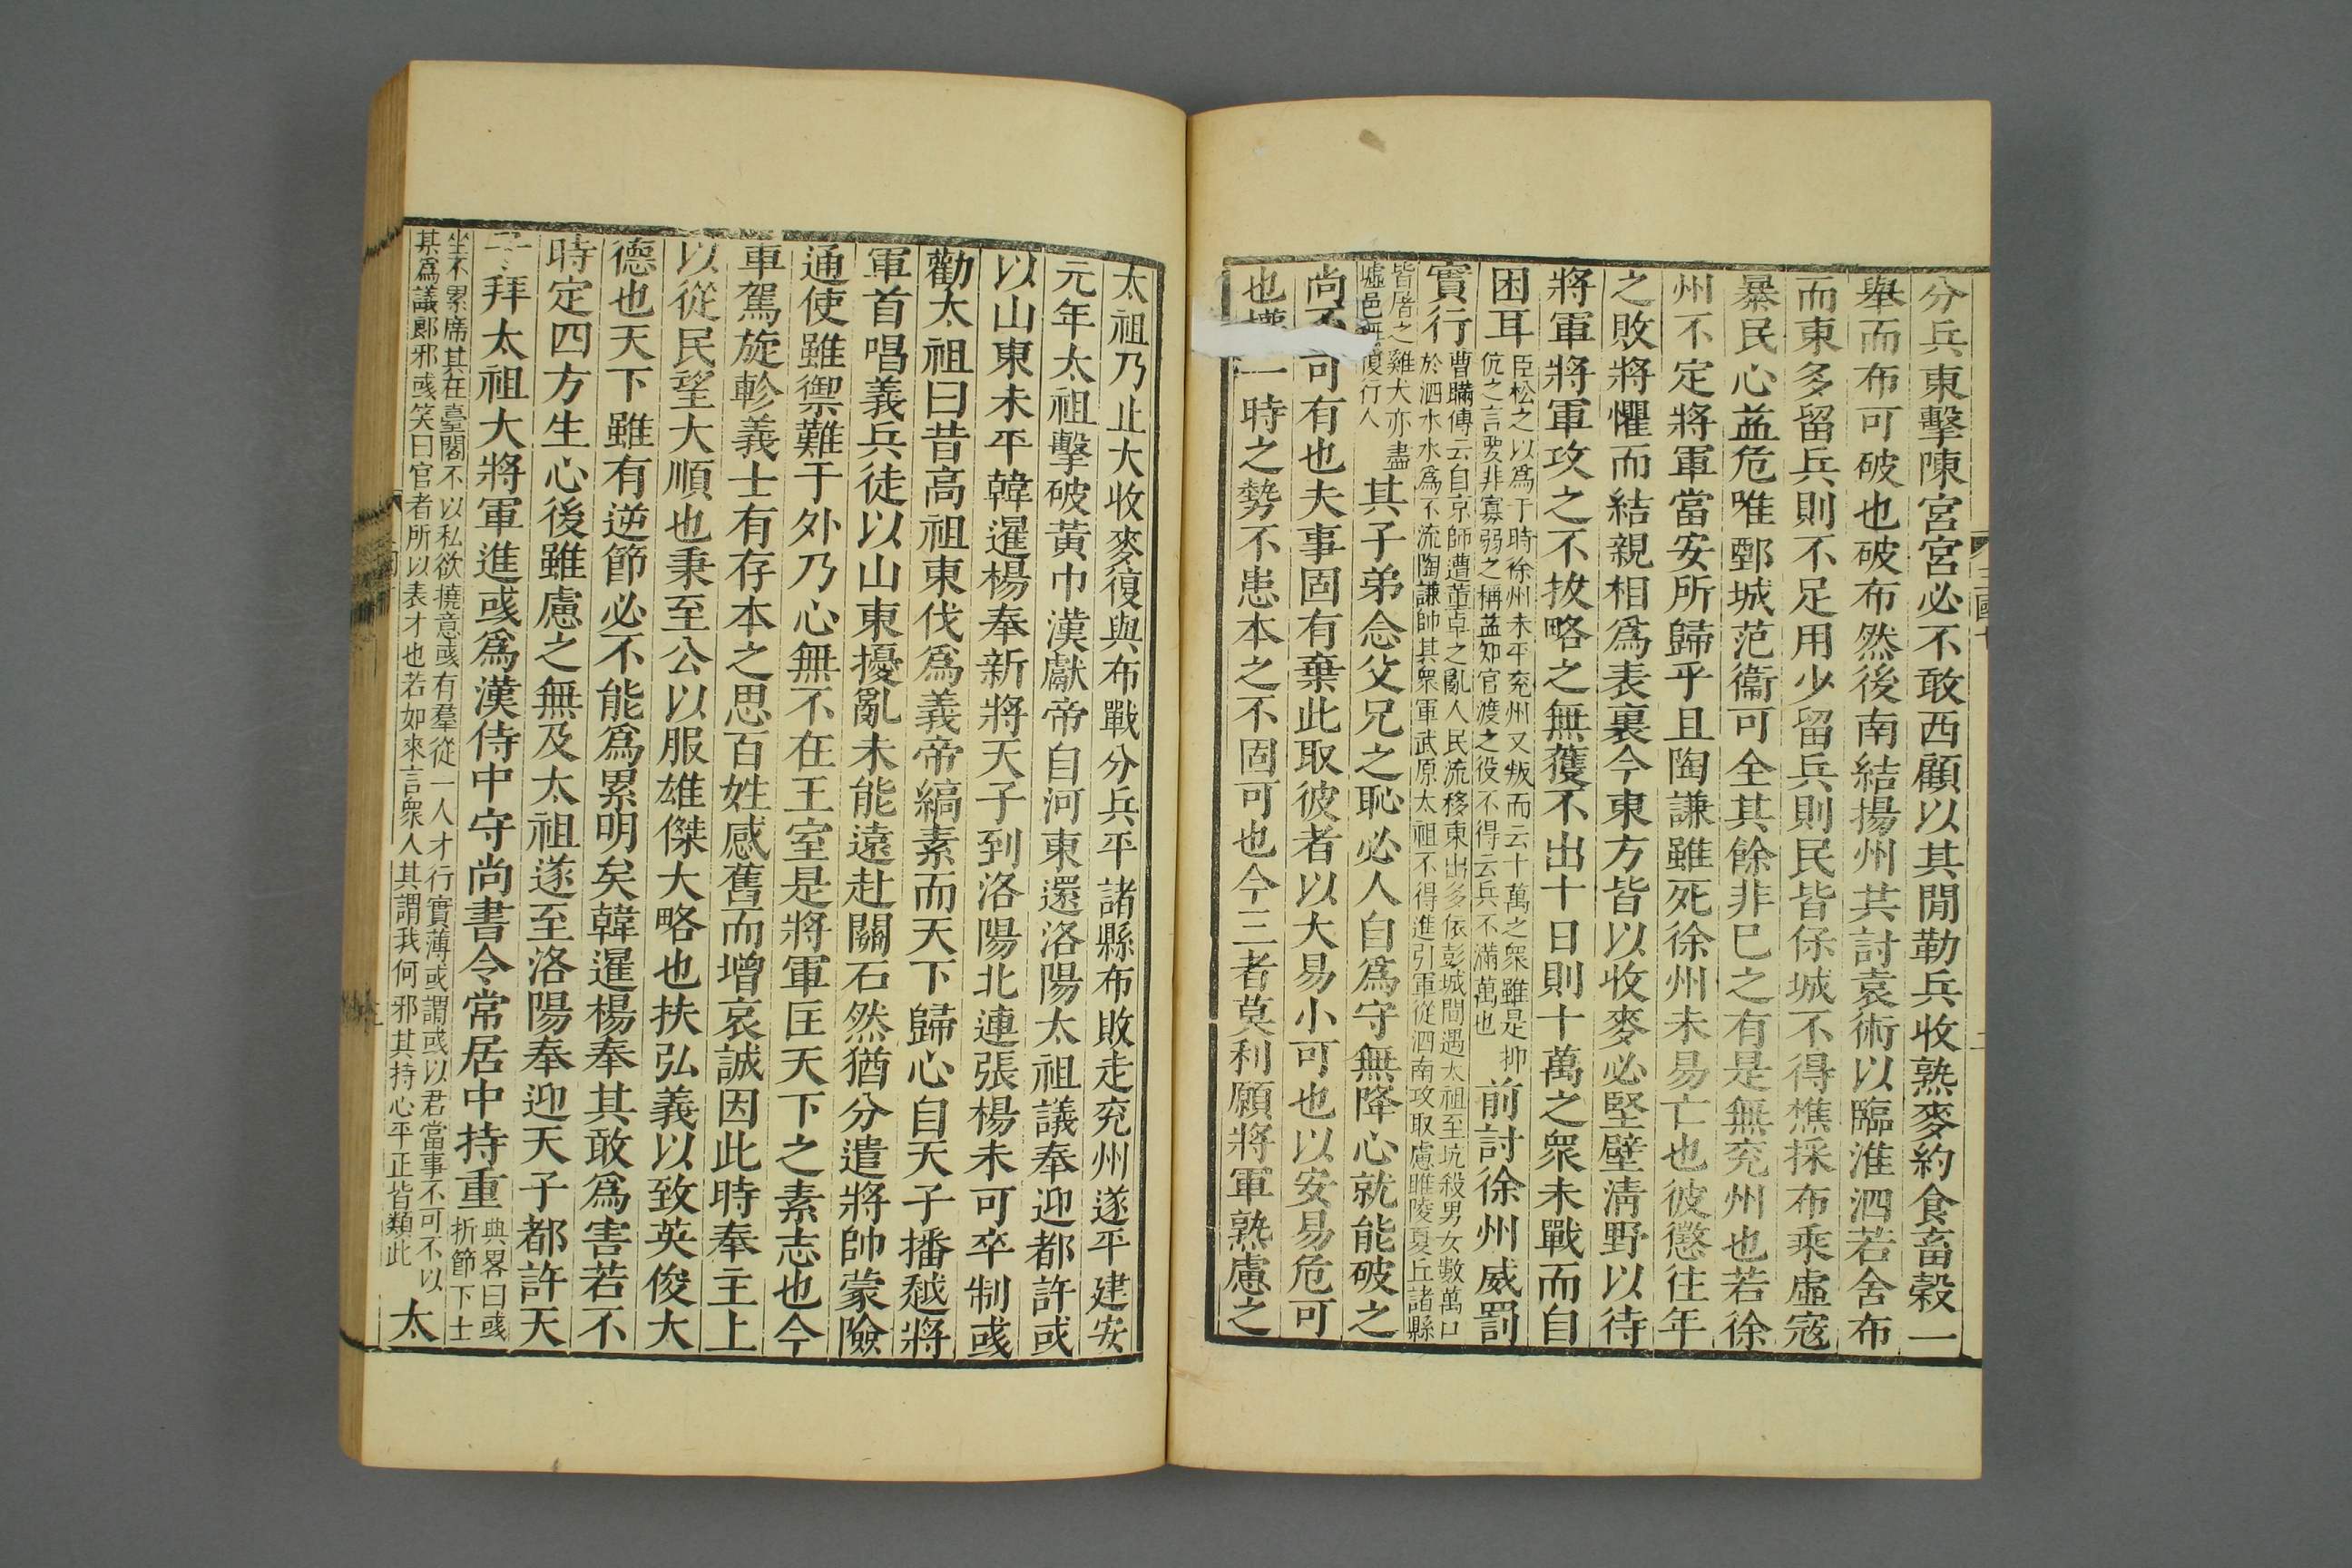 分兵東擊陳宮宮必不敢西顧以其閒勒兵收熟麥約食畜穀一
舉而布可破也破布然後南結揚州共討袁術以臨淮泗若舍布
而東多留兵則不足用少留兵則民皆保城不得樵採布乘虛寇
暴民心益危唯鄄城范衞可全其餘非已之有是無兖州也若徐
州不定將軍當安所歸乎且陶謙雖死徐州未易亡也彼懲往年
之敗將懼而結親相爲表裏今東方皆以收麥必堅壁淸野以待
將軍將軍攻之不拔略之無獲不出十日則十萬之衆未戰而自
困耳臣松之以爲于時徐州未平兖州又叛而云十萬之衆雖是抑
伉之言要非寡弱之稱益知官渡之役不得云兵不滿萬也前討徐州威罰
實行曹瞞傳云自京師遭董卓之亂人民流移東出多依彭城間遇太祖至坑殺男女數萬口
於泗水水爲不流陶謙帥其衆軍武原太祖不得進引軍從泗南攻取慮睢陵夏丘諸縣
皆屠之雞犬亦盡
墟邑無復行人其子弟念父兄之恥必人自爲守無降心就能破之
尚可有也夫事固有棄此取彼者以大易小可也以安易危可
也一時之勢不患本之不固可也今三者莫利願將軍熟慮之
三國十
太祖乃止大收麥復與布戰分兵平諸縣布敗走兖州遂平建安
元年太祖擊破黃巾漢獻帝自河東還洛陽太祖議奉迎都許或
以山東未平韓暹楊奉新將天子到洛陽北連張楊未可卒制彧
勸太祖曰昔高祖東伐爲義帝縞素而天下歸心自天子播越將
軍首唱義兵徒以山東擾亂未能遠赴關右然猶分遣將帥蒙險
通使雖禦難于外乃心無不在王室是將軍匡天下之素志也今
車駕旋軫義士有存本之思百姓感舊而增哀誠因此時奉主上
以從民望大順也秉至公以服雄傑大略也扶弘義以致英俊大
德也天下雖有逆節必不能爲累明矣韓暹楊奉其敢爲害若不
時定四方生心後雖慮之無及太祖遂至洛陽奉迎天子都許天
子拜太祖大將軍進彧爲漢侍中守尚書令常居中持重典畧曰彧
折節下士
坐不累席其在臺閣不以私欲撓意彧有羣從一人才行實薄或謂彧以君當事不可不以
其爲議郎邪彧笑曰官者所以表才也若如來言衆人其謂我何邪其持心平正皆類此太